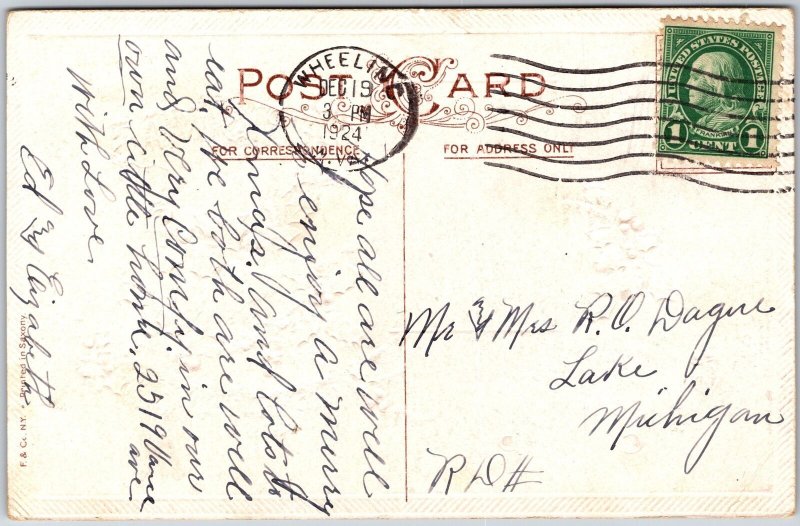 POST CARD
FOR CORRESPONDENCE
FOR ADDRESS ONLY
WHEELING
DEC 19
3 PM
1924
W. VA.
UNITED STATES POSTAGE
FRANKLIN
1 CENT 1
Hope all are well
& enjoy a merry
Xmas, and lots to
eat, We both are well
and Very Comfy, in our
own little home. 2519
ave.
With Love
Ed & Elizabeth
Mr & Mrs R. O. Dague
Lake
Michigan
R D #
F. & Co. N.Y. Printed in Saxony